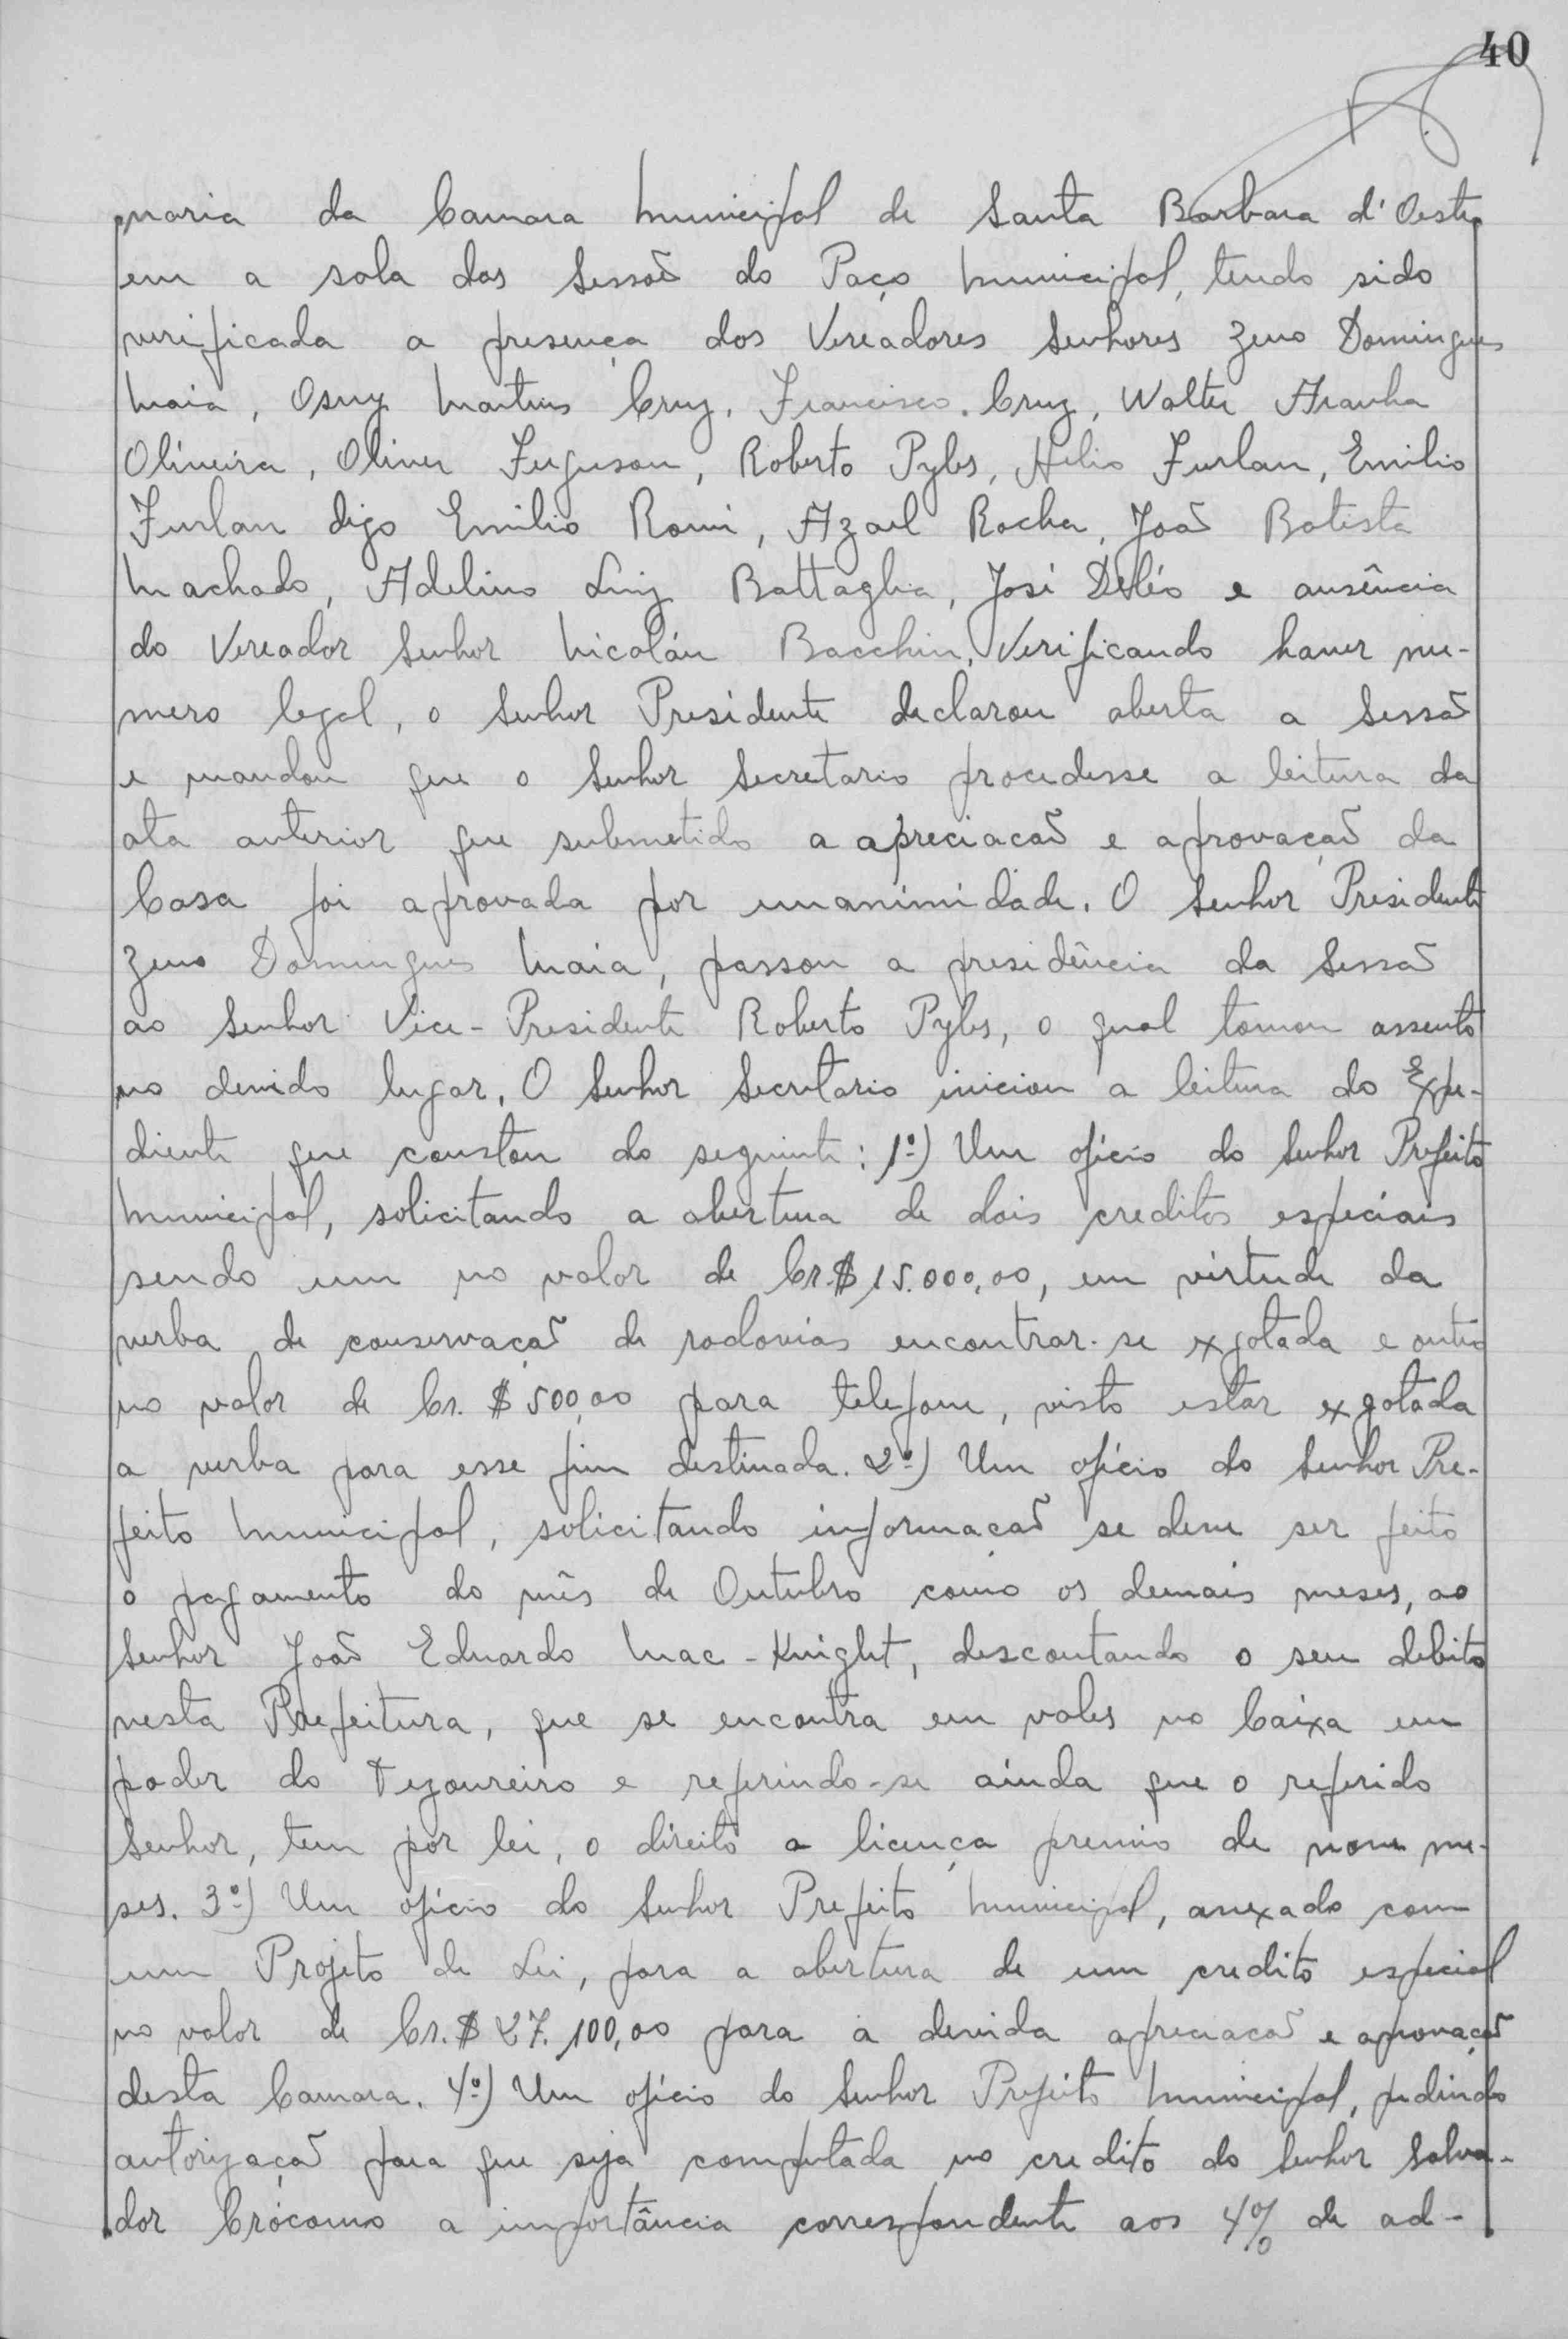 40
naria da Camara Municipal de Santa Barbara d'Oeste
em a sala das Sessoẽ do Paço Municipal, tendo sido
verificada a presença dos Vereadores Senhores Zeno Domingues
Maia, Osny Martins Cruz, Francisco Cruz, Walter Aranha
Oliveira, Oliver Ferguson, Roberto Pyles, Helio Furlan, Emilio
Furlan digo Emilio Romi, Azael Rocha, João Batista
Machado, Adelino Luiz Battaglia, José Deléo e ausência
do Vereador Senhor Nicoláu Bacchin. Verificando haver nu-
mero legal, o Senhor Presidente declarou aberta a Sessão
e mandou que o Senhor Secretario procedesse a leitura da
ata anterior que submetido a apreciacão e aprovação da
Casa foi aprovada por unanimidade. O Senhor Presidente
Zeno Domingues Maia, passou a presidência da Sessão
ao Senhor Vice-Presidente Roberto Pyles, o qual tomou assento
no devido lugar. O Senhor Secretario iniciou a leitura do Expe-
diente que constou do seguinte: 1º) Um oficio do Senhor Prefeito
Municipal, solicitando a abertura de dois creditos especiais
sendo um no valor de Cr.$ 15.000,00, em virtude da
verba de conservação de rodovias encontrar-se exgotada e outro
no valor de Cr.$ 500,00 para telefone, visto estar exgotada
a verba para esse fim destinada. 2º) Um oficio do Senhor Pre-
feito Municipal, solicitando informacão se deve ser feito
o pagamento do mês de Outubro como os demais meses, ao
Senhor João Eduardo Mac-Knight, descontando o seu debito
nesta Prefeitura, que se encontra em vales no Caixa em
poder do Tezoureiro e referindo-se ainda que o referido
Senhor, tem por lei, o direito a licença premio de nove me-
ses. 3º) Um oficio do Senhor Prefeito Municipal, anexado com
um Projeto de Lei, para a abertura de um credito especial
no valor de Cr.$ 27.100,00 para a devida apreciacão e aprovação
desta Camara. 4º) Um oficio do Senhor Prefeito Municipal, pedindo
autorização para que seja computada no credito do Senhor Salva-
dor Crócomo a importância correspondente aos 4% de ad-